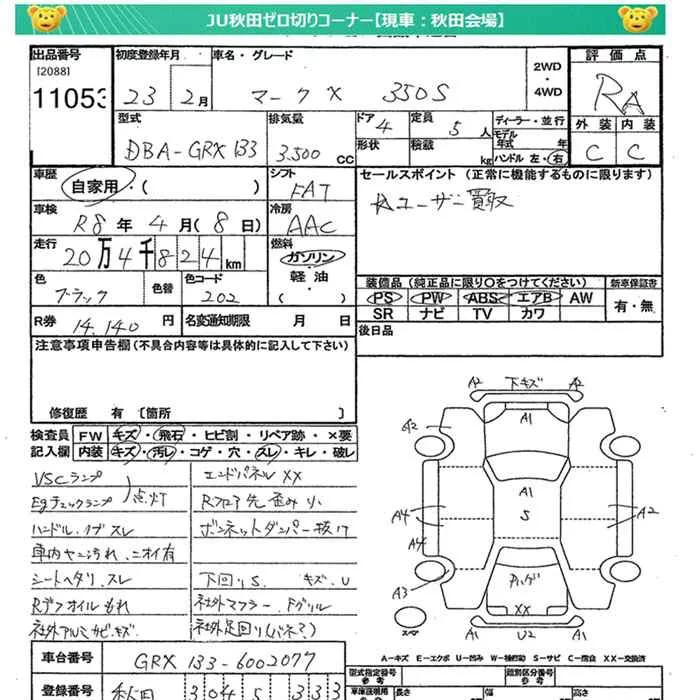 JU秋田ゼロ切りコーナー【現車：秋田会場】
出品番号 初度登録年月 車名・グレード 2WD・4WD 評価点
[2088]
11053 23年 2月 マークX 350S RA
型式 排気量 ドア 4 定員 5人 ディーラー・並行
モデル年式 年
外装 内装
DBA-GRX133 3.500CC 形状 積載 kg ハンドル 左・右 C C
車歴 自家用・( ) シフト FAT セールスポイント (正常に機能するものに限ります)
車検 R8年 4月(8日) 冷房 AAC ユーザー買取
走行 20万4千824km 燃料 ガソリン・軽油・( )
色 ブラック 色替 色コード 202
装備品 (純正品に限り○をつけてください) 新車保証書
PS PW ABS エアB AW 有・無
SR ナビ TV カワ
R券 14,140円 名変通知期限 月 日
後日品
注意事項申告欄(不具合内容等は具体的に記入して下さい)
修復歴 有 〔箇所 〕
検査員記入欄 FW キズ・飛石・ヒビ割・リペア跡・×要
内装 キズ・汚レ・コゲ・穴・スレ・キレ・破レ
VSCランプ
Egチェックランプ 点灯
ハンドル、ノブ スレ
車内ヤニ汚れ、ニオイ有
シートヘタリ、スレ
Rデフオイルもれ
社外アルミサビ、キズ
エンドパネルXX
Rフロア先歪み小
ボンネットダンパー抜け
下回りS、キズ、U
社外マフラー、Fグリル
社外足回り(バネ?)
A2 下キズ A2
A2 A1
A1
S
A4 A4 A2
A3 ハゲ
XX
スペア A1 U2 A1
A-キズ E-エクボ U-凹み W-補修跡 S-サビ C-腐食 XX-交換済
車台番号 GRX133-6002077
型式指定番号 類別区分番号
登録番号 秋田 304 333
長さ 幅 高さ